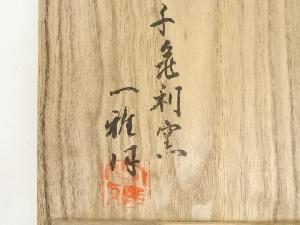 千亀利窯
一雅作